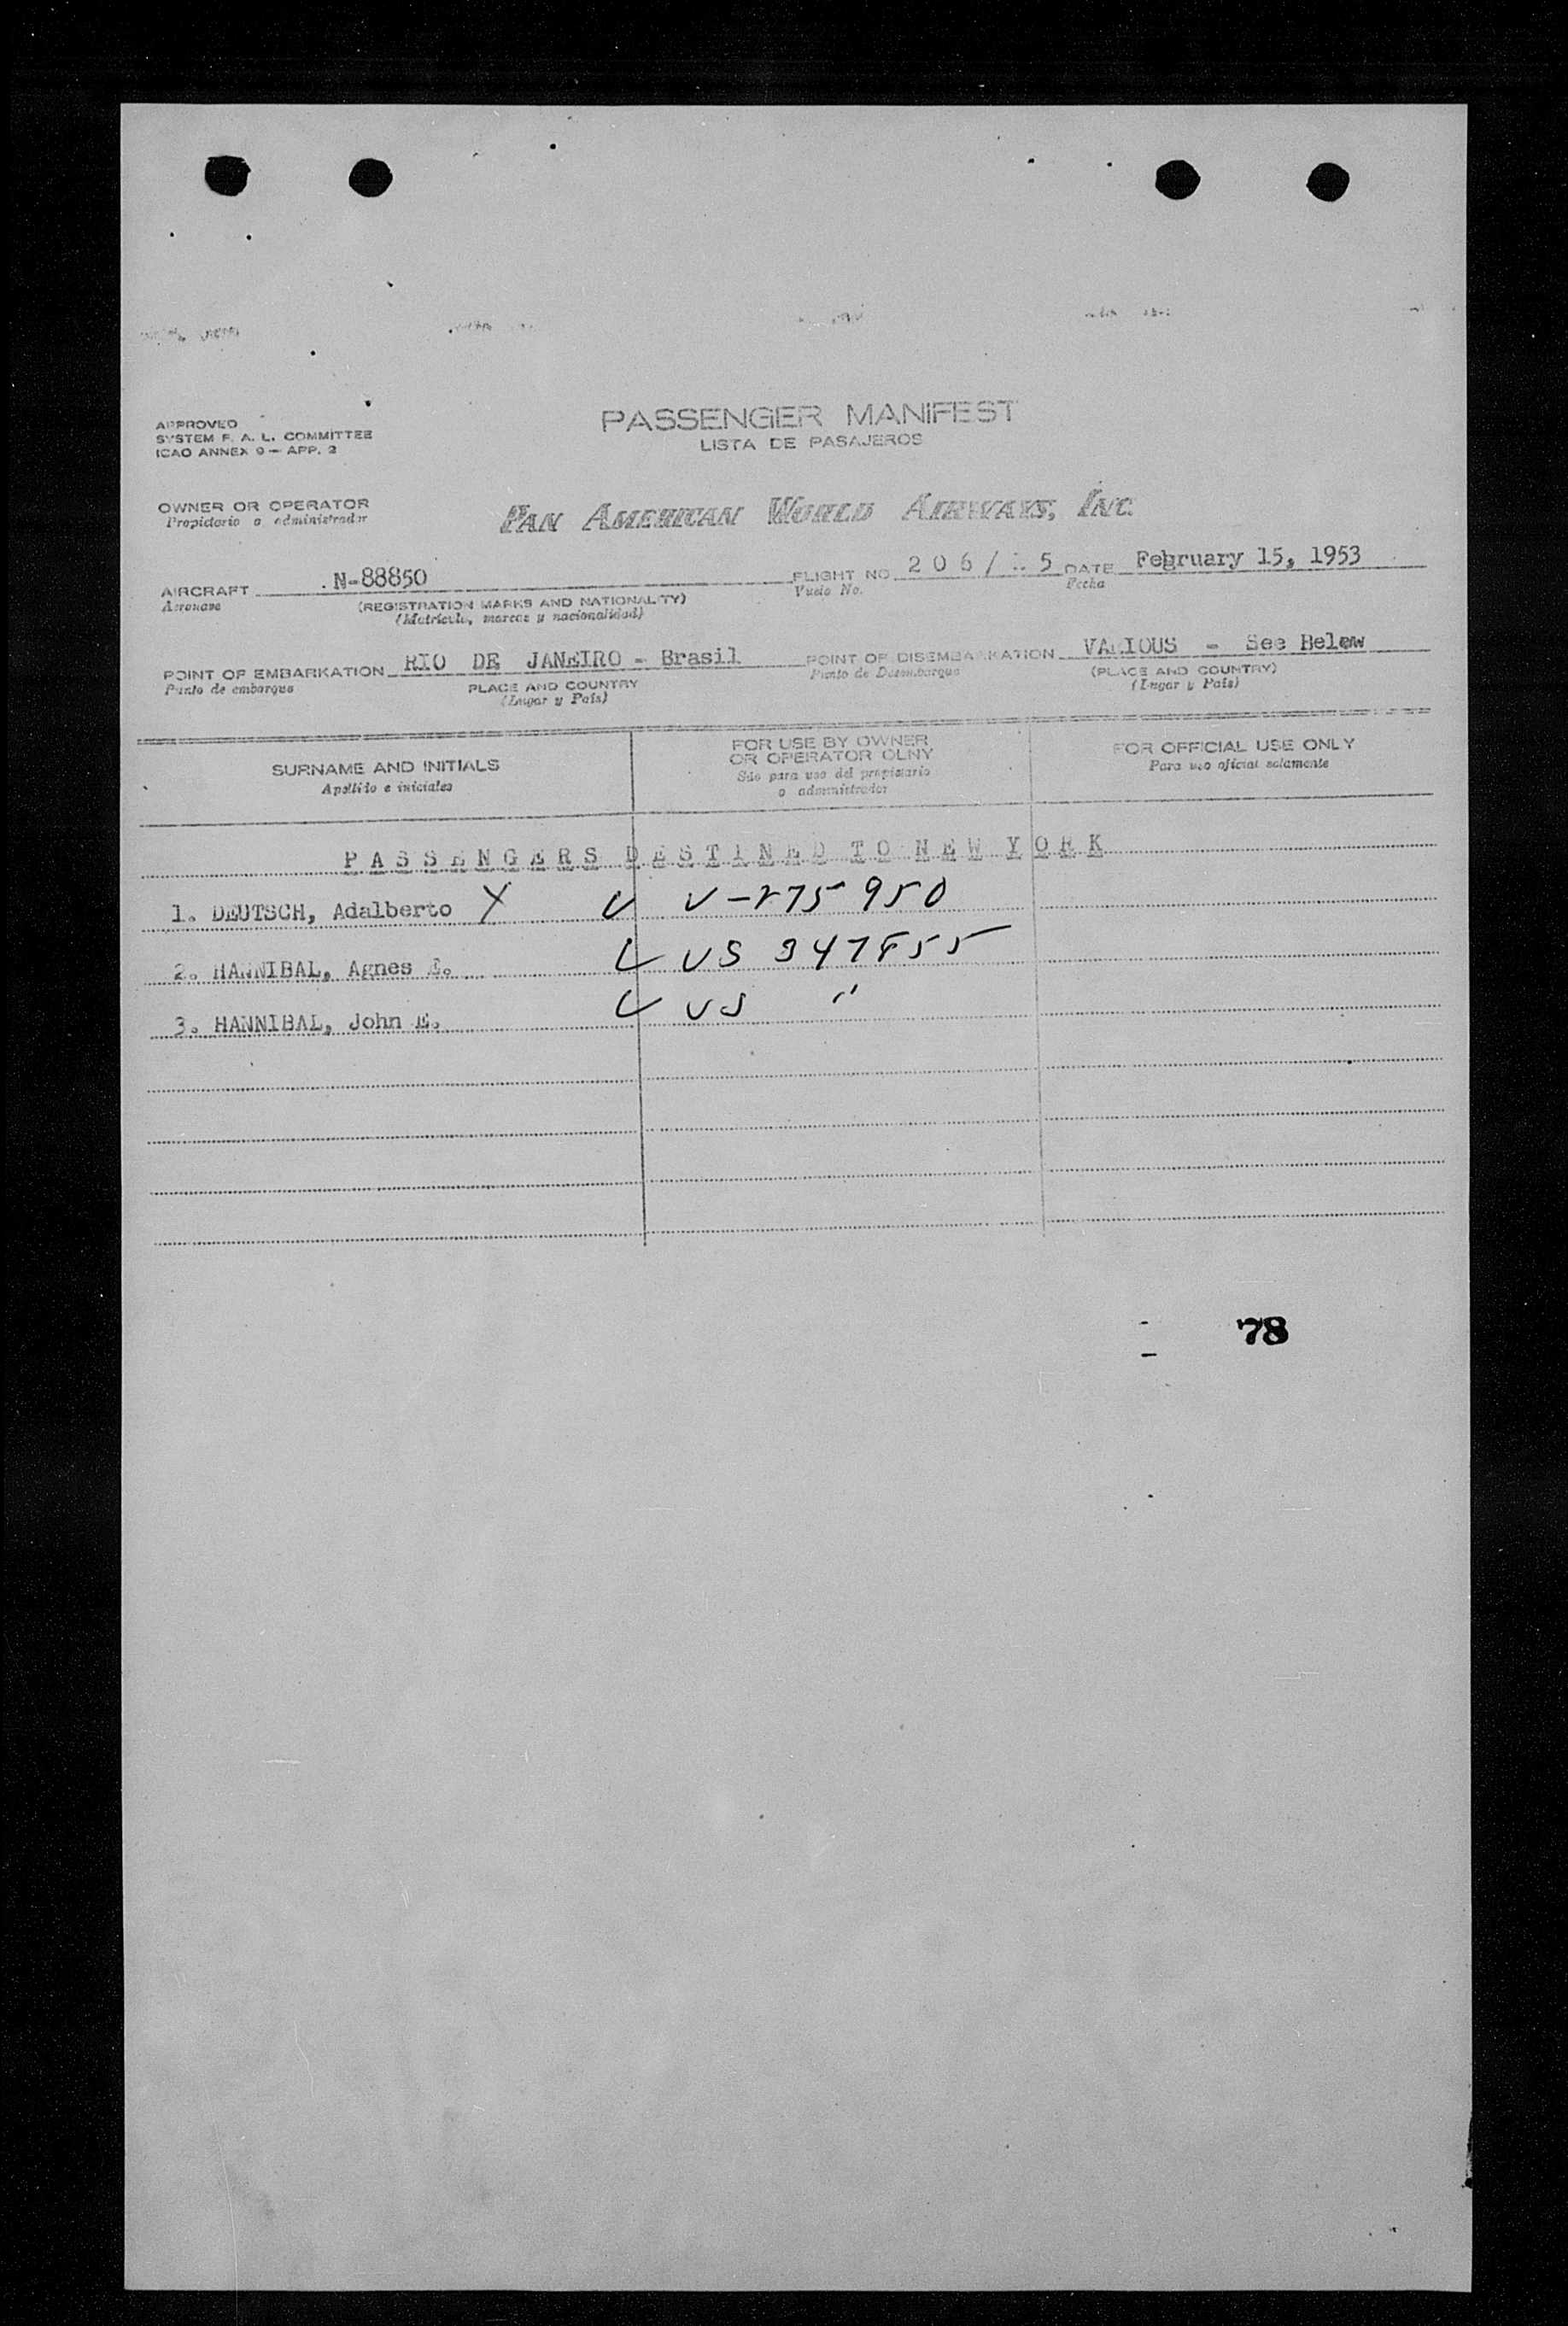 APPROVED
SYSTEM F. A. L. COMMITTEE
ICAO ANNEX 9 — APP. 2
PASSENGER MANIFEST
LISTA DE PASAJEROS
OWNER OR OPERATOR
Propietario o administrador
PAN AMERICAN WORLD AIRWAYS, INC.
AIRCRAFT N-88850 FLIGHT NO 206/ 5 DATE February 15, 1953
Aeronave Vuelo No. Fecha
(REGISTRATION MARKS AND NATIONALITY)
(Matrícula, marcas y nacionalidad)
POINT OF EMBARKATION RIO DE JANEIRO - Brasil POINT OF DISEMBARKATION VARIOUS - See Below
Punto de embarque PLACE AND COUNTRY Punto de Desembarque (PLACE AND COUNTRY)
(Lugar y País) (Lugar y País)
SURNAME AND INITIALS
Apellido e iniciales
FOR USE BY OWNER
OR OPERATOR OLNY
Sólo para uso del propietario
o administrador
FOR OFFICIAL USE ONLY
Para uso oficial solamente
PASSENGERS DESTINED TO NEW YORK
1. DEUTSCH, Adalberto X V V-275950
2. HANNIBAL, Agnes E. US 347855
3. HANNIBAL, John E. US "
78